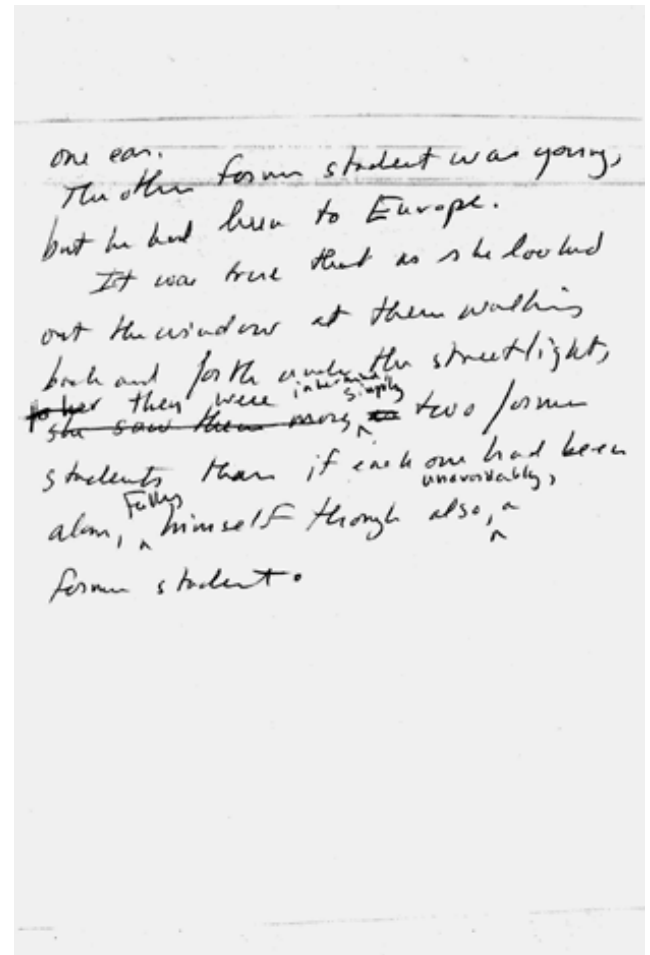 one ear.
The other former student was young,
but he had been to Europe.
It was true that as she looked
out the window at them walking
back and forth under the streetlight,
to her they were in her mind simply
she saw them more as two former
students than if each one had been
unavoidably,
alone, fully himself though also, a
former student.